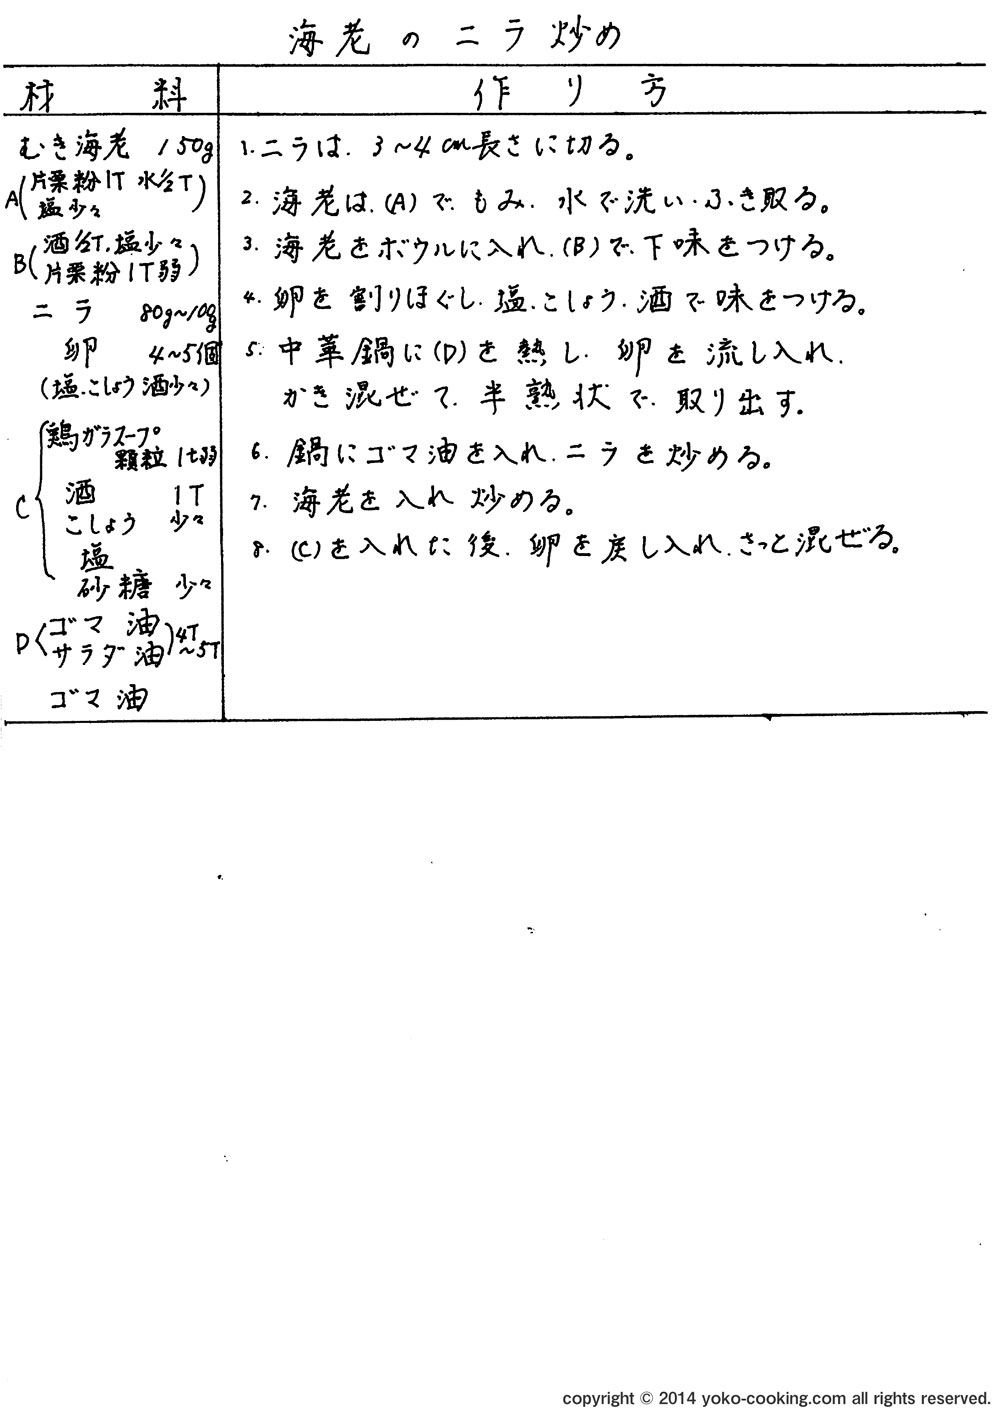 海老のニラ炒め
材料
作り方
むき海老 150g
A(片栗粉1T 水1/2T
塩少々)
B(酒1/2T.塩少々
片栗粉1T弱)
ニラ 80g~100g
卵 4~5個
(塩.こしょう酒少々)
C{鶏ガラスープ
顆粒 1t弱
酒 1T
こしょう 少々
塩
砂糖 少々
D〈ゴマ油
サラダ油)4T~5T
ゴマ油
1.ニラは.3~4cm長さに切る。
2.海老は.(A)で.もみ.水で洗い.ふき取る。
3.海老をボウルに入れ.(B)で.下味をつける。
4.卵を割りほぐし.塩.こしょう.酒で味をつける。
5.中華鍋に(D)を熱し.卵を流し入れ.
かき混ぜて.半熟状で.取り出す.
6.鍋にゴマ油を入れ.ニラを炒める。
7.海老を入れ炒める。
8.(C)を入れた後.卵を戻し入れ.さっと混ぜる。
copyright © 2014 yoko-cooking.com all rights reserved.